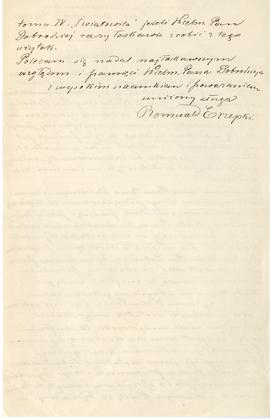 tomu IV. „Światowita" jeżeli Wielm. Pan
Dobrodziej raczy łaskawie zrobić z tego
użytek.
Polecam się nadal najłaskawszym
względom i pamięci Wielm. Pana Dobrodzieja
z wysokim szacunkiem i poważaniem
uniżony sługa
Romuald Erzepki